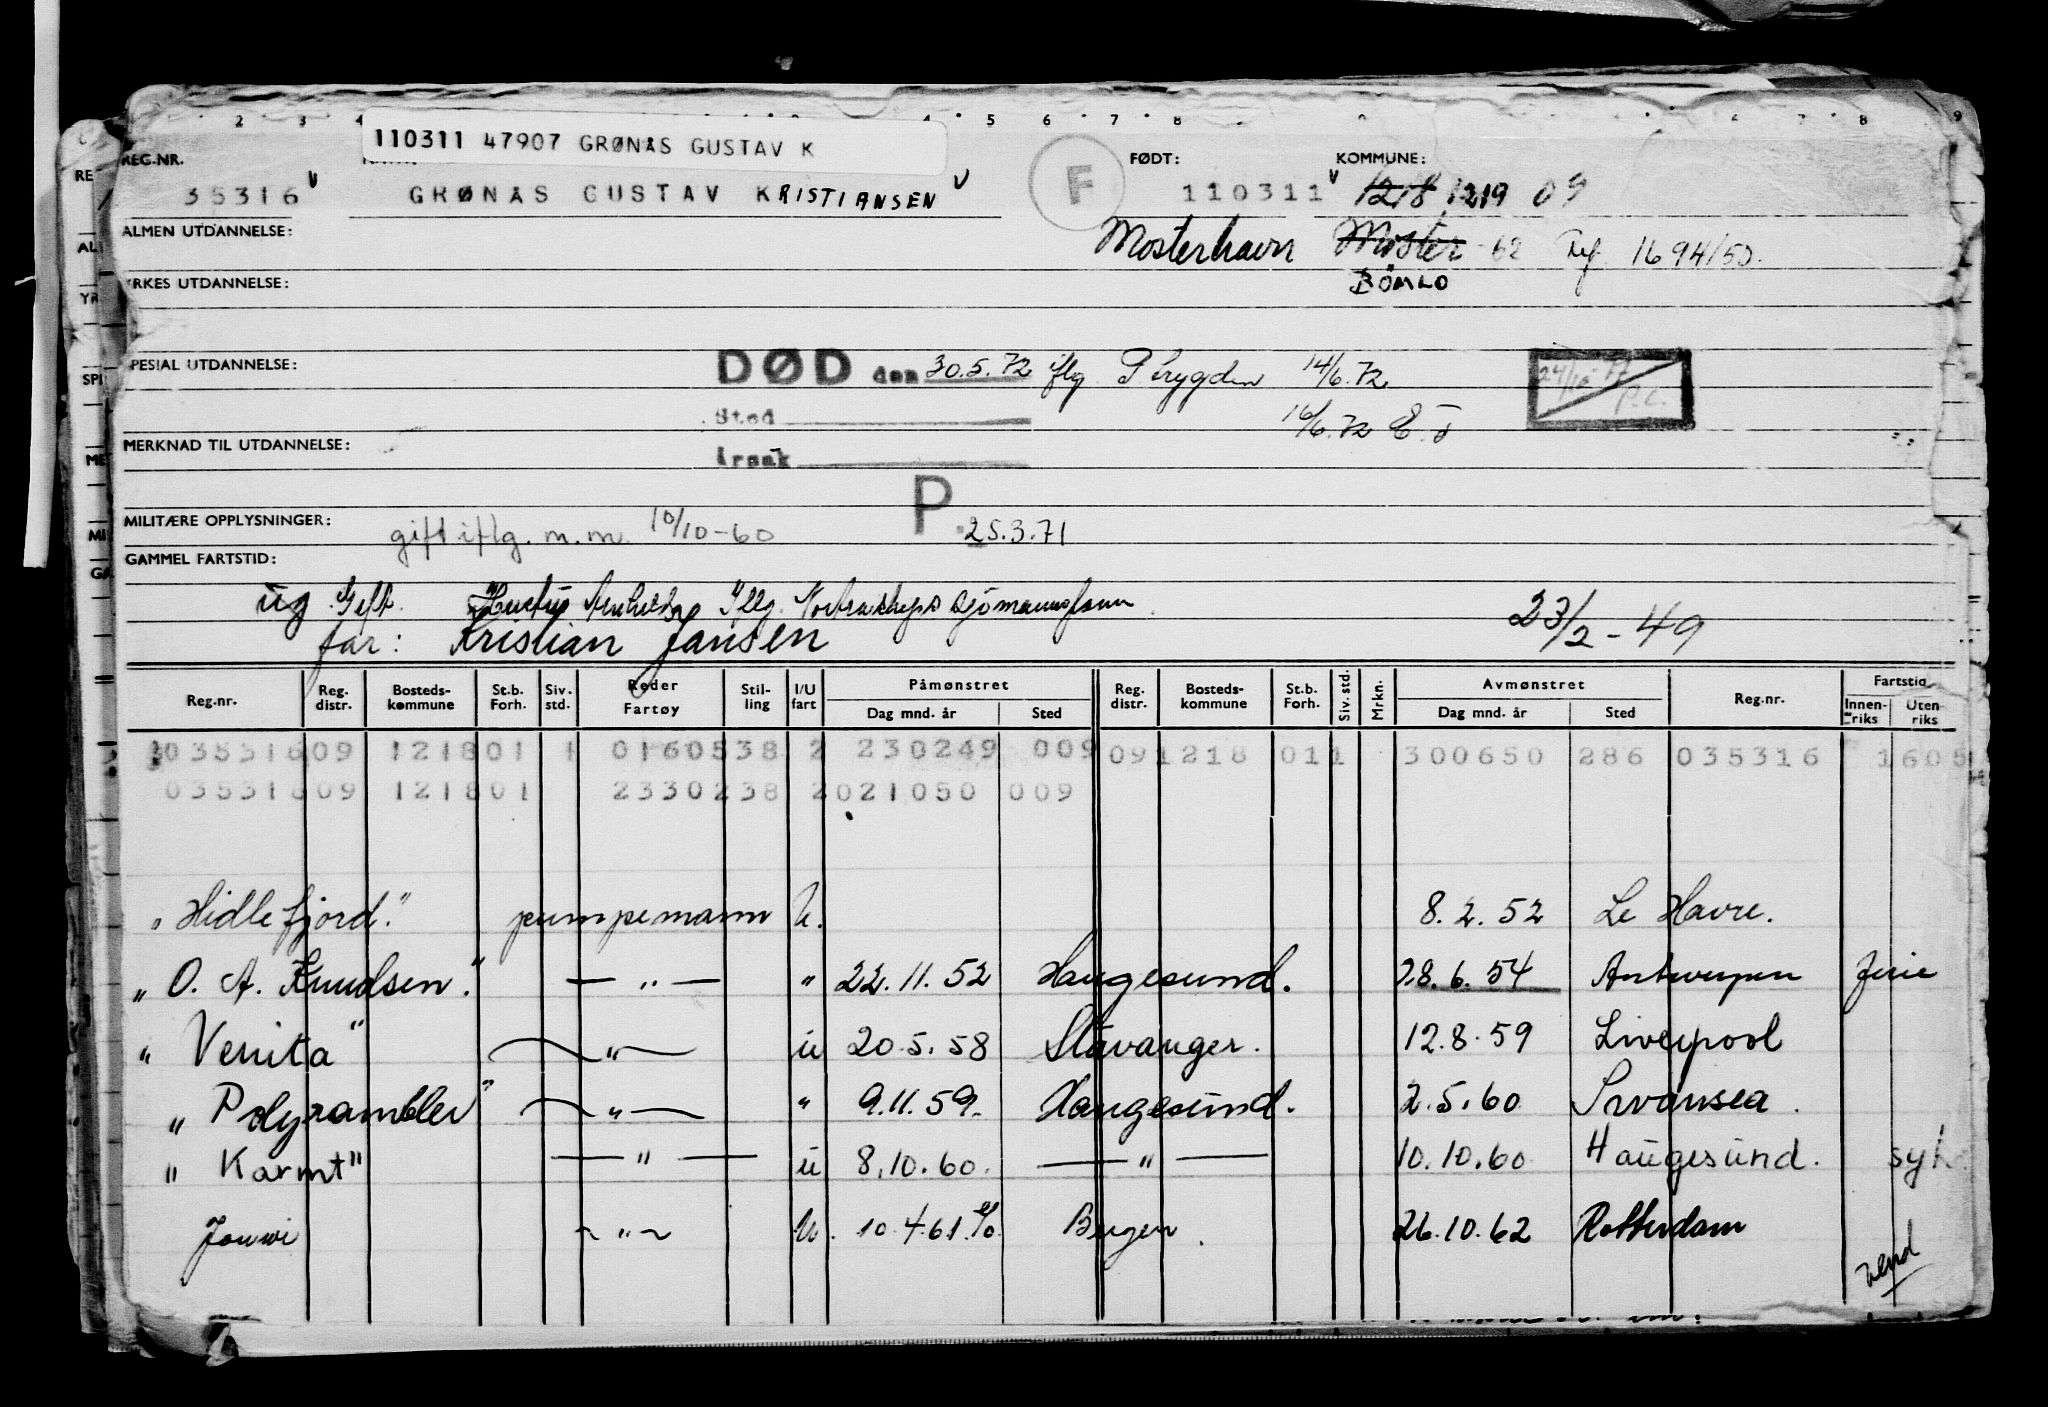 110311 47907 GRØNÅS GUSTAV K
REG.NR. FØDT: KOMMUNE:
35316 v GRØNÅS GUSTAV KRISTIANSEN v F 110311 v 1218 1219 09
ALMEN UTDANNELSE: Mosterhavn Moster 62 Ref. 1694/50.
YRKES UTDANNELSE: BÖMLO
SPESIAL UTDANNELSE: DØD den 30.5.72 iflg P.trygden 14/6.72
Sted 16/6.72
MERKNAD TIL UTDANNELSE: Årsak
P
MILITÆRE OPPLYSNINGER: gift iflg. m.m. 10/10-60 25.3.71
GAMMEL FARTSTID:
ug Gift. sjömannsfonn 23/2-49
far: Kristian Jansen
Reg.nr. Reg. distr. Bosteds-kommune St.b. Forh. Siv. std. Reder Fartøy Stil-ling I/U fart Påmønstret Dag mnd. år Sted Reg. distr. Bosteds-kommune St.b. Forh. Siv. std. Mrkn. Avmønstret Dag mnd. år Sted Reg.nr. Fartstid Innen-riks Uten-riks
035316 09 1218 01 1 0160538 2 230249 009 09 1218 01 1 300650 286 035316 1605
035316 09 1218 01 2330238 2 021050 009
"Hidlefjord." pumpemann U. 8.2.52 Le Havre.
"O. A. Knudsen." — " — " 22.11.52 Haugesund. 28.6.54 Antwerpen ferie
"Venita" — " — u 20.5.58 Stavanger. 12.8.59 Liverpool
"Polyrambler" — " — " 9.11.59. Haugesund. 2.5.60 Swansea.
"Karmt" — " — u 8.10.60. — " — 10.10.60 Haugesund. syk
Jouwi ~ " ~ U. 10.4.61. Bergen. 26.10.62 Rotterdam
vend